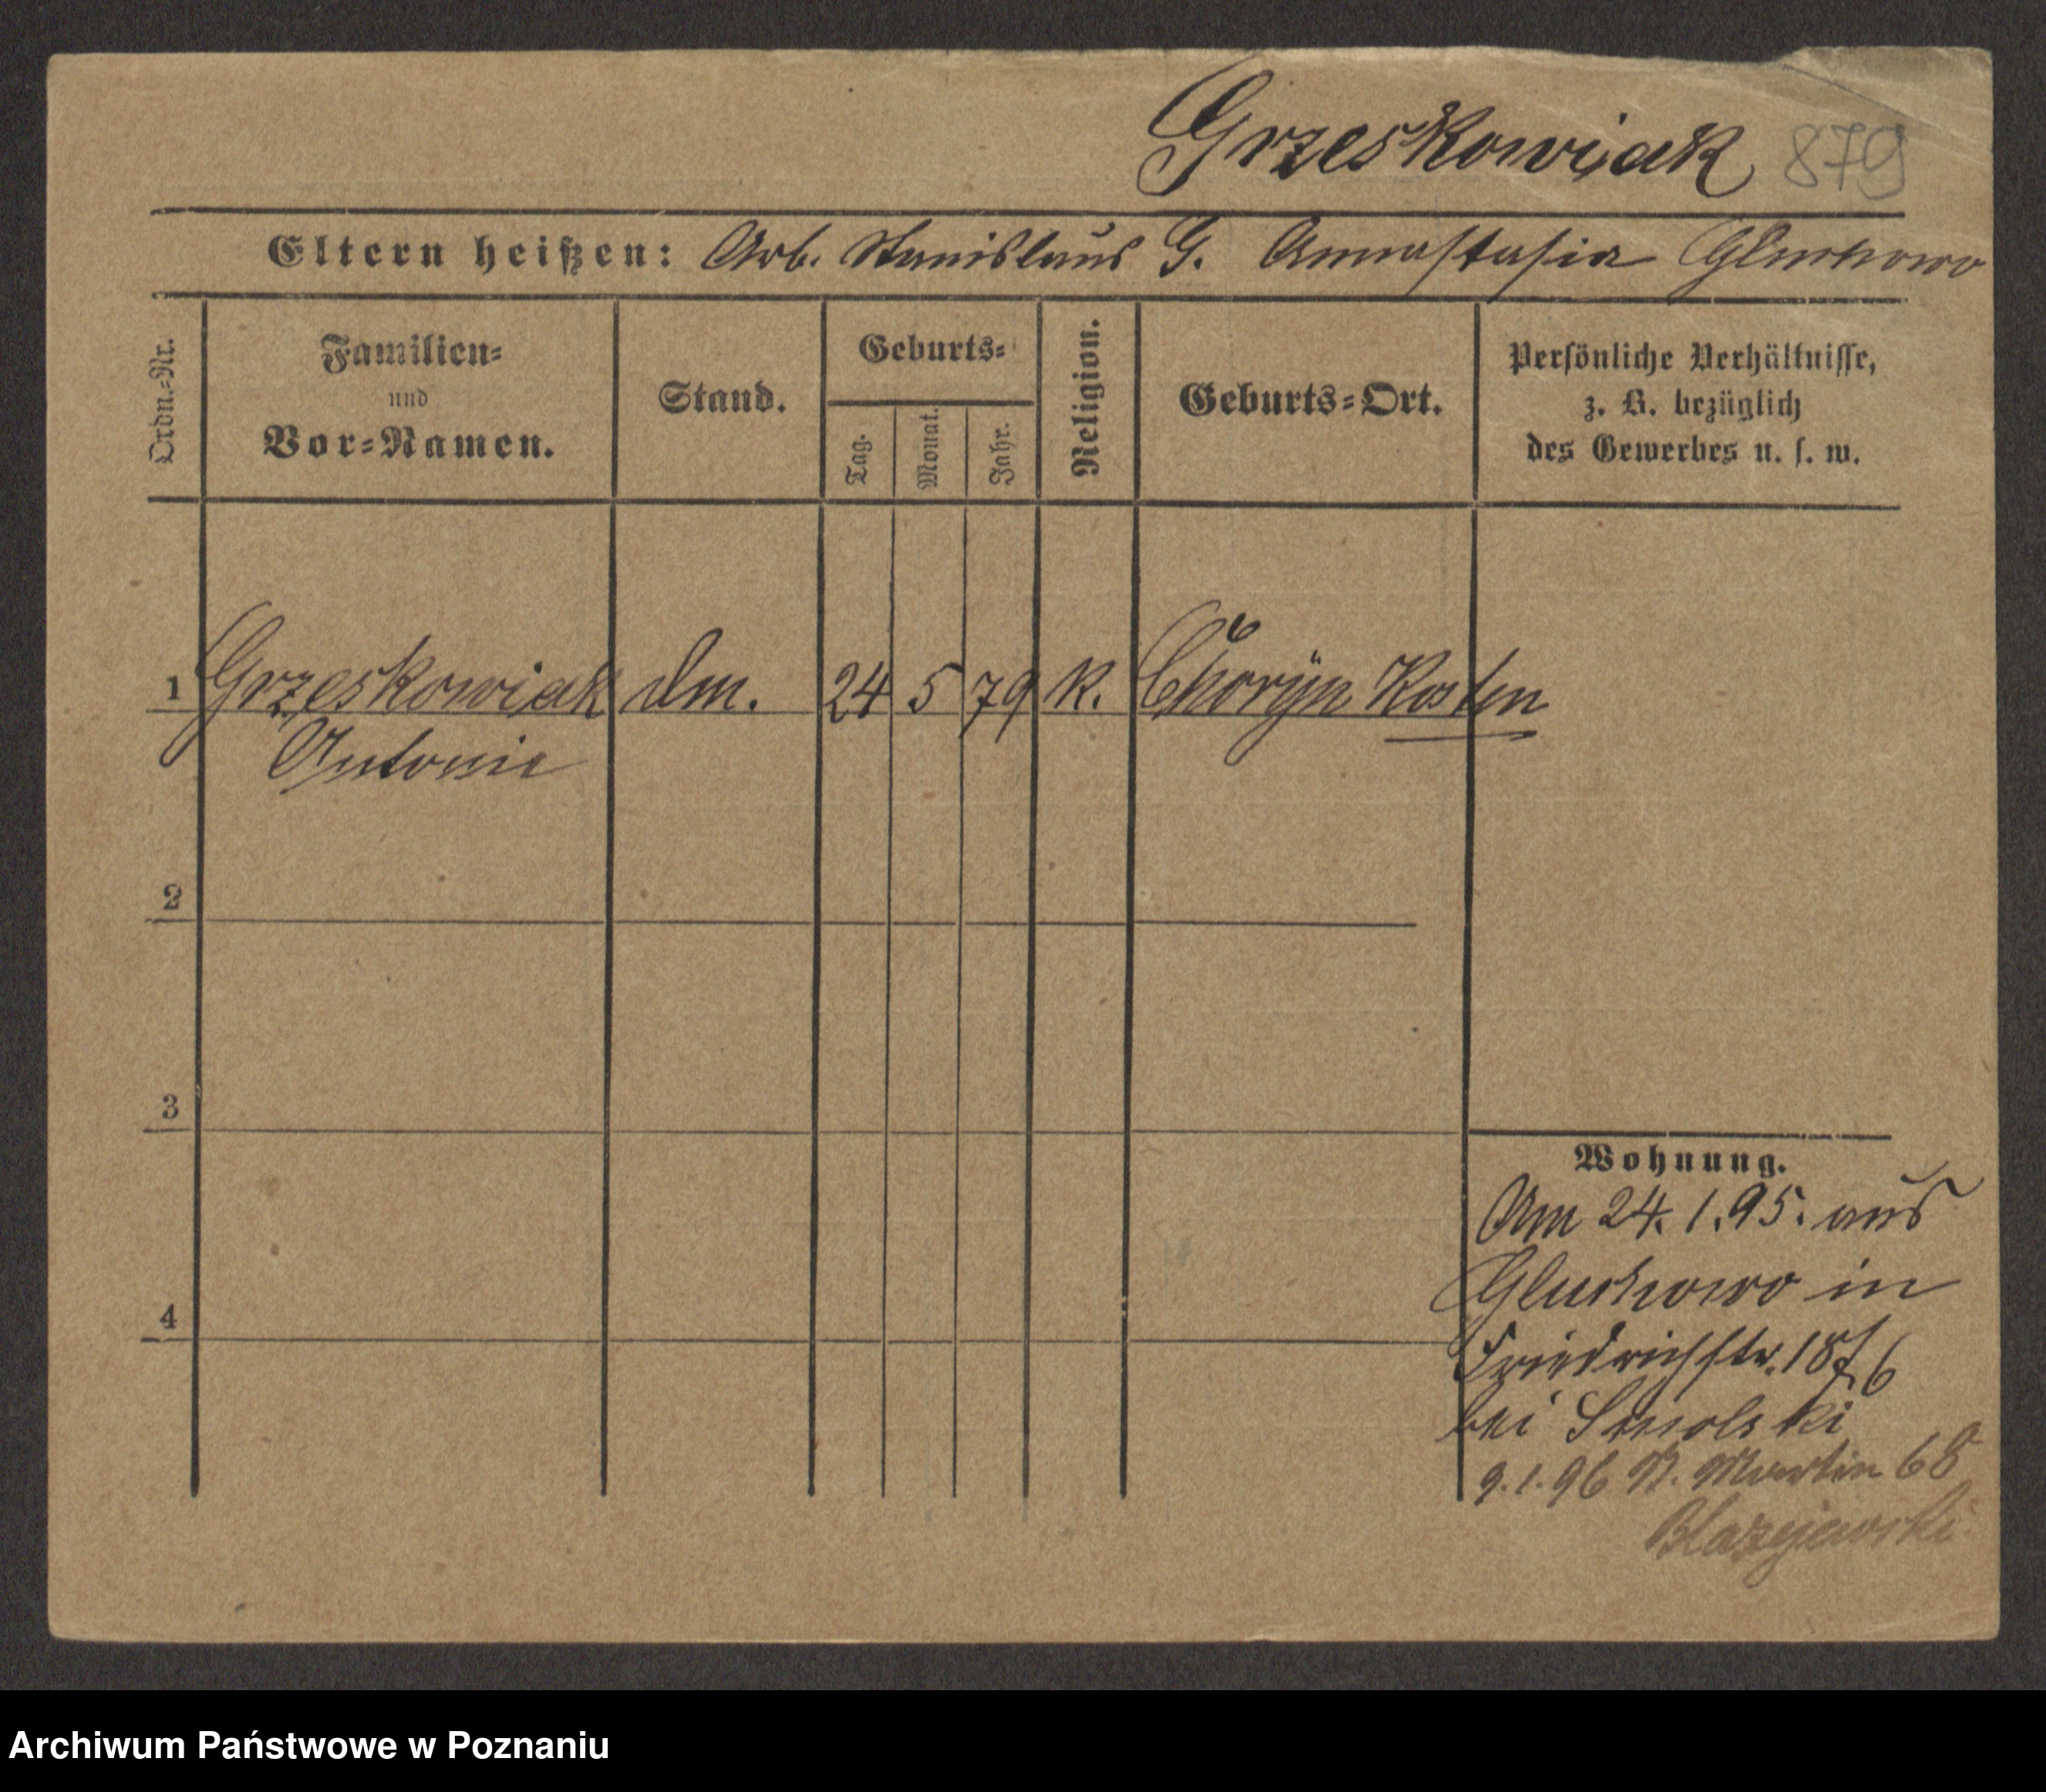 Grzeskowiak 879
Eltern heißen: Arb. Stanislaus G. Annastasia Gluchowo
Ordn.-Nr.
Familien-
und
Vor-Namen.
Stand.
Geburts-
Tag.
Monat.
Jahr.
Religion.
Geburts-Ort.
Persönliche Verhältnisse,
z. B. bezüglich
des Gewerbes u. s. w.
1 Grzeskowiak dm. 24 5 79 k. Choryn Kosten
Antonie
2
3
4
Wohnung.
Am 24.1.95. aus
Gluchowo in
Friedrichstr. 18
bei Smolski
9.1.96 St. Martin 68
Blazejewski
Archiwum Państwowe w Poznaniu